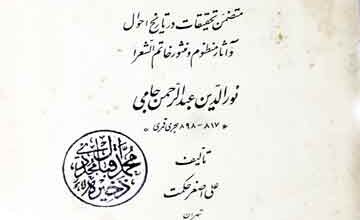 متضمن تحقیقات در تاریخ احوال
و آثار منظوم و منثور خاتم الشعرا
نورالدین عبدالرحمن جامی
* ۸۱۷-۸۹۸ هجری قمری *
تألیف
علی اصغر حکمت
تهران
ذخیره
محمد اقبال مجددی